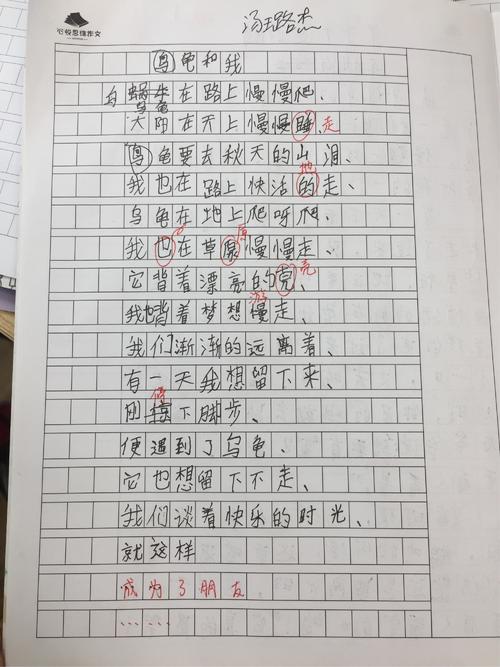 悦思维作文
汤王路杰
乌龟和我
乌蜗牛在路上慢慢爬、
乌龟
太阳在天上慢慢睡、走
乌龟要去秋天的山泪、
地
我也在路上快活的走、
乌龟在地上爬呀爬、
原
我也在草慢慢走、
它背着漂亮的壳、壳
游
我也背着梦想慢走、
我们渐渐的远离着、
有一天我想留下来、
停
刚下脚步、
便遇到了乌龟、
它也想留下不走、
我们谈着快乐的时光、
就这样
成为了朋友
……